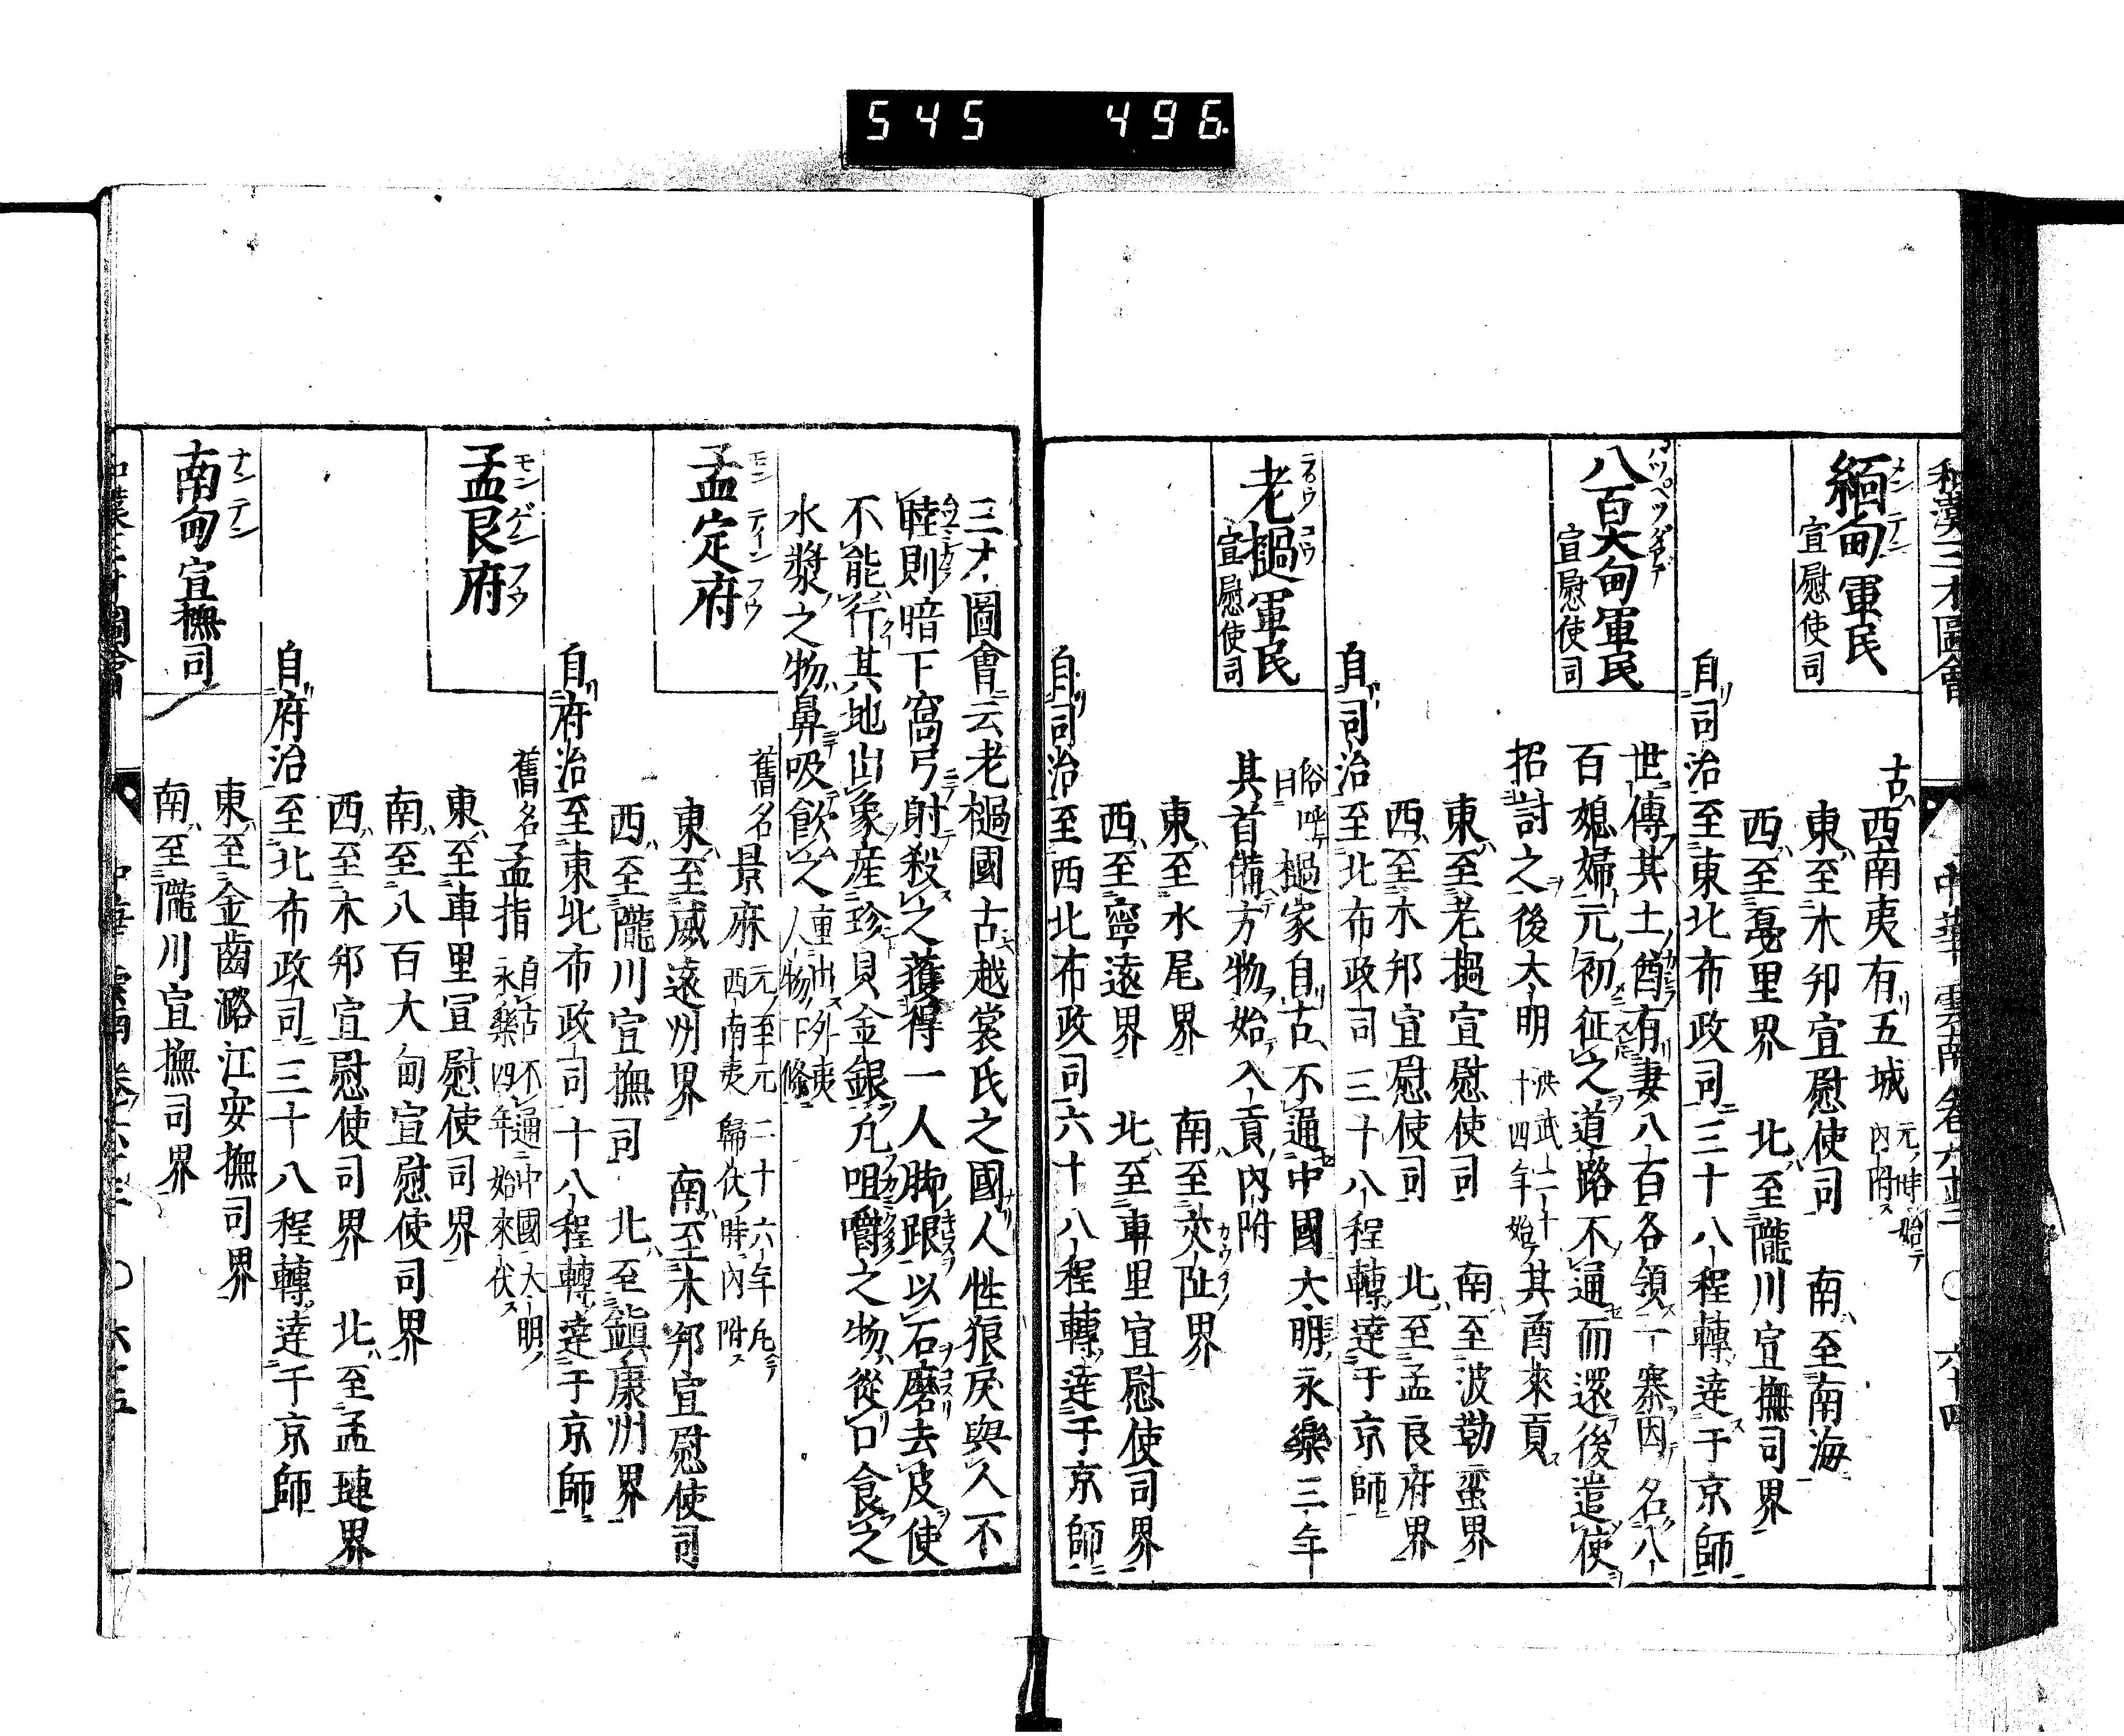 545 496
和漢三才圖會 中華 雲南 卷六十三 ○六十四
緬甸軍民宣慰使司
メンテン
古ハ西南夷有リ五城 元ノ時始テ內附ス
東ハ至木邦宣慰使司 南ハ至南海
西ハ至戞里界 北ハ至隴川宣撫司界
自リ司治至東北布政司三十八程轉達ス于京師
八百大甸軍民宣慰使司
世傳其土酋有妻八百各領一寨因名八
百媳婦元初征之道路不通而還後遣使
招討之後大明 洪武二十十四年始 其酋來貢
東ハ至老撾宣慰使司 南ハ至波勒蛮界
西ハ至木邦宣慰使司 北ハ至孟艮府界
自司治至北布政司三十八程轉達于京師
老撾軍民宣慰使司
俗呼曰撾家自古不通中國大明永樂三年
其首備方物始入貢內附
東ハ至水尾界 南ハ至交阯界
西ハ至寧遠界 北ハ至車里宣慰使司界
自司治至西北布政司六十八程轉達于京師
三才圖會云老撾國古越裳氏之國人性狠戾與人不
睦則暗下窩弓射殺之獲得一人脚跟以石磨去皮使
不能行其地出象産珍貝金銀凡咀嚼之物從口食之
水漿之物鼻吸飲之 重出外夷人物下條
孟定府
モンテインフウ
舊名景麻 元ノ至元二十六年 西南夷歸伏ノ時內附ス
東ハ至威遠州界 南ハ至木邦宣慰使司
西ハ至隴川宣撫司 北ハ至鎮康州界
自府治至東北布政司十八程轉達于京師
孟艮府
モンゲンフウ
舊名孟指 自古不通中國大明ノ永樂四年始來伏ス
東ハ至車里宣慰使司界
南ハ至八百大甸宣慰使司界
西ハ至木邦宣慰使司界 北ハ至孟璉界
自府治至北布政司三十八程轉達于京師
南甸宣撫司
ナンテン
東ハ至金齒潞江安撫司界
南ハ至隴川宣撫司界